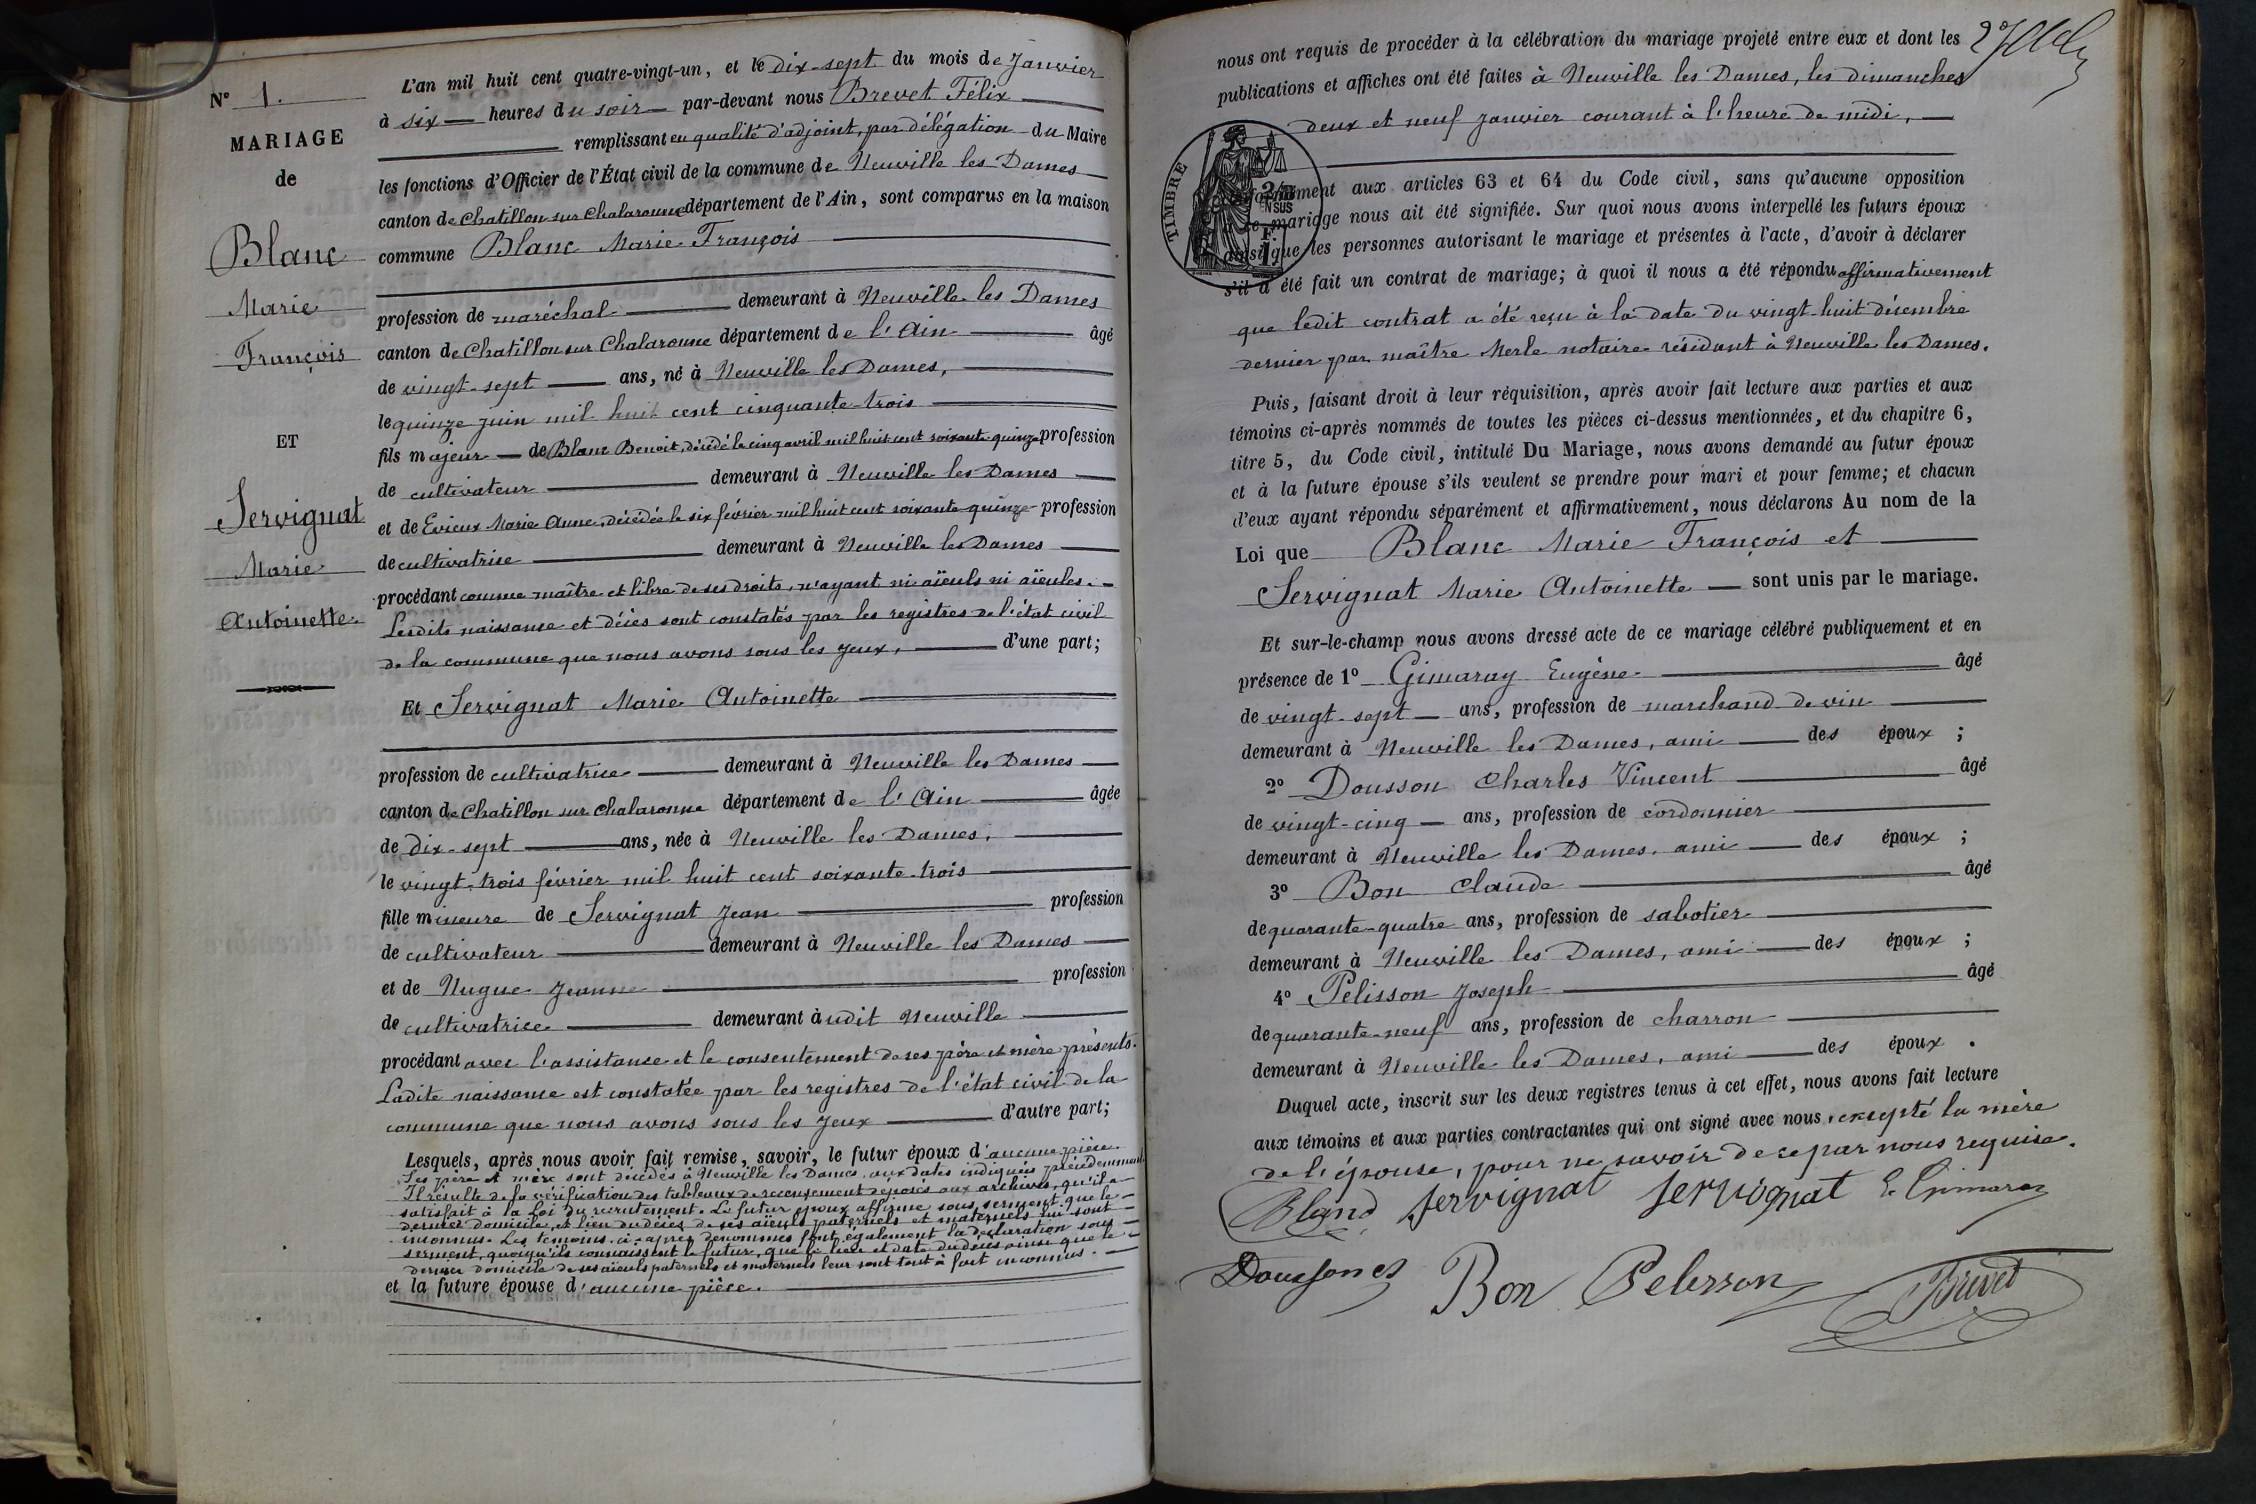 N° 1.
MARIAGE
de
Blanc
Marie
François
ET
Servignat
Marie
Antoinette.
L'an mil huit cent quatre-vingt-un, et le dix-sept du mois de Janvier
à six heures du soir par-devant nous Brevet Félix
remplissant en qualité d'adjoint, par délégation du Maire
les fonctions d'Officier de l'État civil de la commune de Neuville les Dames
canton de Chatillon sur Chalaronne département de l'Ain, sont comparus en la maison
commune Blanc Marie François
profession de maréchal demeurant à Neuville les Dames
canton de Chatillon sur Chalaronne département de l'Ain âgé
de vingt-sept ans, né à Neuville les Dames,
le quinze juin mil huit cent cinquante-trois
fils majeur de Blanc Benoit, décédé le cinq avril mil huit cent soixante-quinze profession
de cultivateur demeurant à Neuville les Dames
et de Evieux Marie Anne, décédée le six février mil huit cent soixante-quinze profession
de cultivatrice demeurant à Neuville les Dames
procédant comme maître et libre de ses droits, n'ayant ni aïeuls ni aïeules.
Lesdits naissance et décès sont constatés par les registres de l'état civil
de la commune que nous avons sous les yeux, d'une part;
Et Servignat Marie Antoinette
profession de cultivatrice demeurant à Neuville les Dames
canton de Chatillon sur Chalaronne département de l'Ain âgée
de dix-sept ans, née à Neuville les Dames,
le vingt-trois février mil huit cent soixante-trois
fille mineure de Servignat Jean profession
de cultivateur demeurant à Neuville les Dames
et de Nugue Jeanne profession
de cultivatrice demeurant à udit Neuville
procédant avec l'assistance et le consentement de ses père et mère présents.
Ladite naissance est constatée par les registres de l'état civil de la
commune que nous avons sous les yeux d'autre part;
Lesquels, après nous avoir fait remise, savoir, le futur époux d'aucune pièce.
Ses père et mère sont décédés à Neuville les Dames, aux dates indiquées précédemment
Il résulte de la vérification des tableaux de recensement déposés aux archives, qu'il a
satisfait à la Loi du recrutement. Le futur époux affirme sous serment que le
dernier domicile et lieu du décès de ses aïeuls paternels et maternels lui sont
inconnus. Les témoins ci-après dénommés font également la déclaration sous
serment, quoiqu'ils connaissent le futur, que le lieu et date du décès ainsi que le
dernier domicile de ses aïeuls paternels et maternels leur sont tout à fait inconnus.
et la future épouse d'aucune pièce.
nous ont requis de procéder à la célébration du mariage projeté entre eux et dont les
publications et affiches ont été faites à Neuville les Dames, les dimanches
deux et neuf Janvier courant à l'heure de midi,
TIMBRE
conformément aux articles 63 et 64 du Code civil, sans qu'aucune opposition
ce mariage nous ait été signifiée. Sur quoi nous avons interpellé les futurs époux
ainsi que les personnes autorisant le mariage et présentes à l'acte, d'avoir à déclarer
s'il a été fait un contrat de mariage; à quoi il nous a été répondu affirmativement
que ledit contrat a été reçu à la date du vingt-huit décembre
dernier par maître Merle notaire résidant à Neuville les Dames.
Puis, faisant droit à leur réquisition, après avoir fait lecture aux parties et aux
témoins ci-après nommés de toutes les pièces ci-dessus mentionnées, et du chapitre 6,
titre 5, du Code civil, intitulé Du Mariage, nous avons demandé au futur époux
et à la future épouse s'ils veulent se prendre pour mari et pour femme; et chacun
d'eux ayant répondu séparément et affirmativement, nous déclarons Au nom de la
Loi que Blanc Marie François et
Servignat Marie Antoinette sont unis par le mariage.
Et sur-le-champ nous avons dressé acte de ce mariage célébré publiquement et en
présence de 1° Gimaray Eugène âgé
de vingt-sept ans, profession de marchand de vin
demeurant à Neuville les Dames, ami des époux ;
2° Dousson Charles Vincent âgé
de vingt-cinq ans, profession de cordonnier
demeurant à Neuville les Dames, ami des époux ;
3° Bon Claude âgé
de quarante-quatre ans, profession de sabotier
demeurant à Neuville les Dames, ami des époux ;
4° Pelisson Joseph âgé
de quarante-neuf ans, profession de charron
demeurant à Neuville les Dames, ami des époux .
Duquel acte, inscrit sur les deux registres tenus à cet effet, nous avons fait lecture
aux témoins et aux parties contractantes qui ont signé avec nous, excepté la mère
de l'épouse, pour ne savoir de ce par nous requise.
Servignat Servignat E. Gimaray
Bon Pelisson Brevet